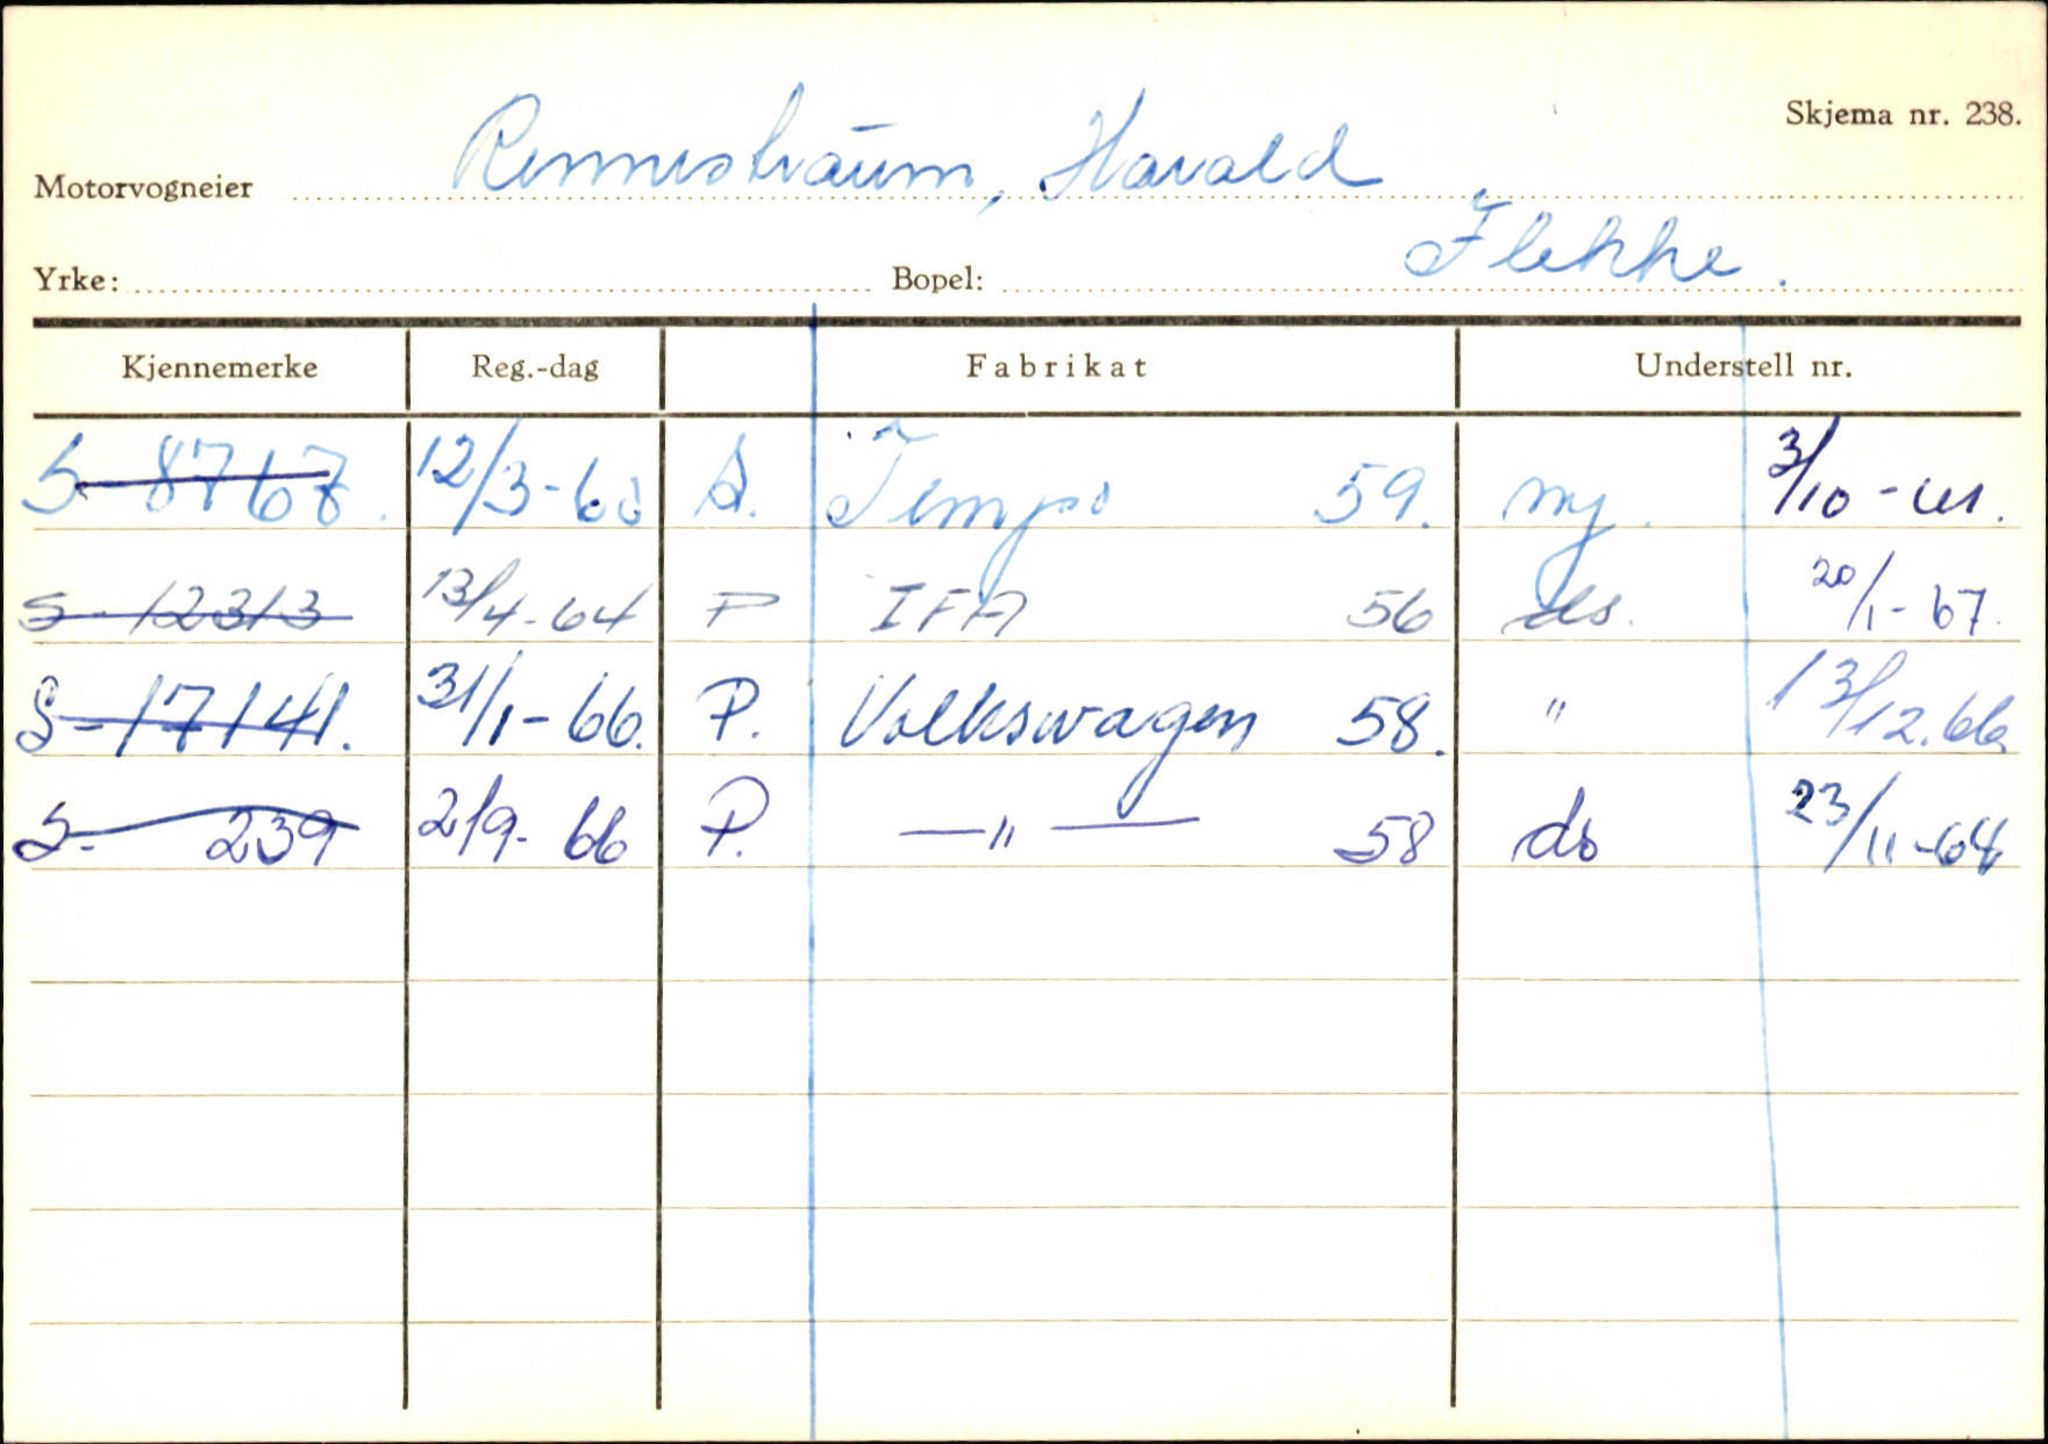 Skjema nr. 238.
Motorvogneier Rennestraum, Harald
Yrke: Bopel: Flekke.
Kjennemerke Reg.-dag Fabrikat Understell nr.
S-8767. 12/3-60 L. Tempo 59. ny. 3/10-61.
S-12313 13/4-64 P IFA 56 ds. 20/1-67.
S-17141. 31/1-66. P. Volkswagen 58. " 13/12.66
S- 239 2/9-66 P. —"— 58 ds 23/11-68